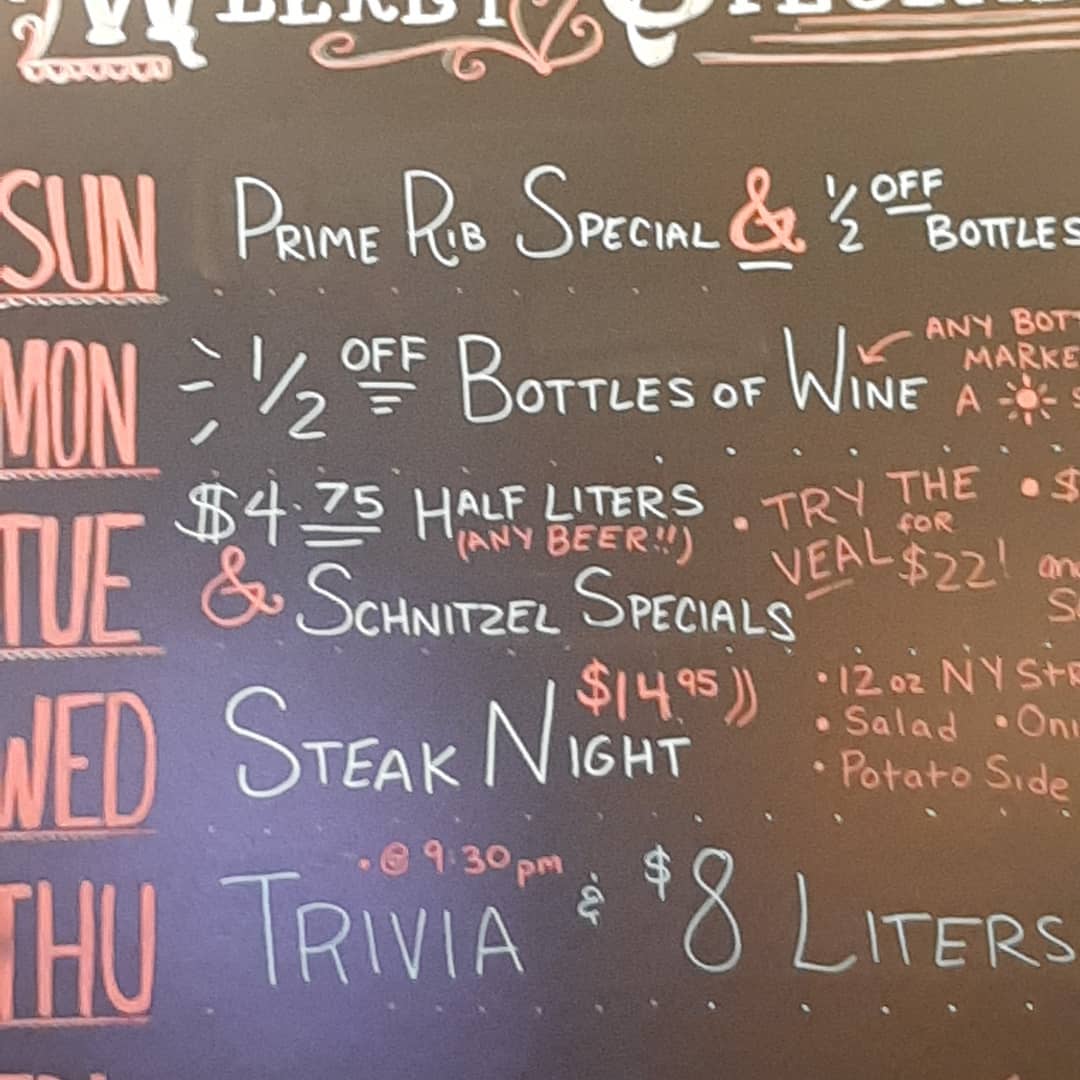 SUN PRIME RIB SPECIAL & 1/2 OFF BOTTLES
MON 1/2 OFF BOTTLES OF WINE
ANY
A
TUE $4.75 HALF LITERS
(ANY BEER!!)
& SCHNITZEL SPECIALS
• TRY THE
VEAL FOR
$22!
WED STEAK NIGHT $14.95))
• 12 oz NY
• Salad •
• Potato Side
THU TRIVIA • @ 9:30pm & $8 LITERS